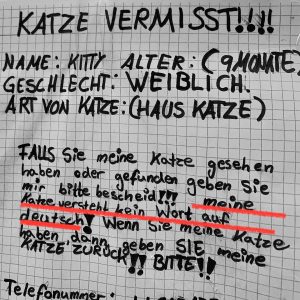 KATZE VERMISST!!!!
NAME: KITTY ALTER: (9MONATE)
GESCHLECHT: WEIBLICH.
ART VON KATZE: (HAUS KATZE)
FALLS Sie meine Katze gesehen
haben oder gefunden geben Sie
mir bitte bescheid!!! meine
Katze versteht kein Wort auf
deutsch! Wenn Sie meine Katze
haben dann geben SIE meine
KATZE ZURÜCK!! BITTE!!
Telefonummer: